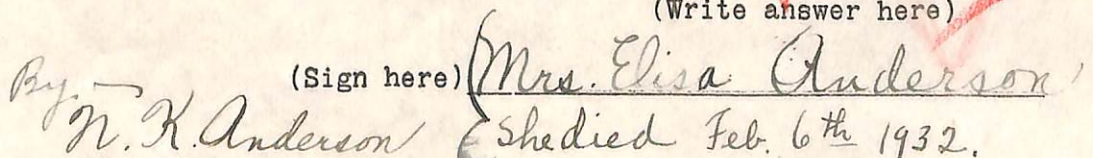 (Write answer here)
By — (Sign here) (Mrs. Elisa Anderson
N. K. Anderson (She died Feb. 6th 1932.